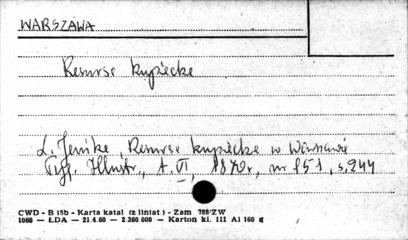 WARSZAWA
Resursa kupiecka
L. Jenike, Resursa kupiecka w Warszawie
Tyg. Illustr., t. VI, 1870r, nr 151, s. 244
CWD - B 15b - Karta katal (z liniat) - Zam 788/ZW
1060 — ŁDA — 21.4.60 — 2.360 000 — Karton kl. III A1 160 g